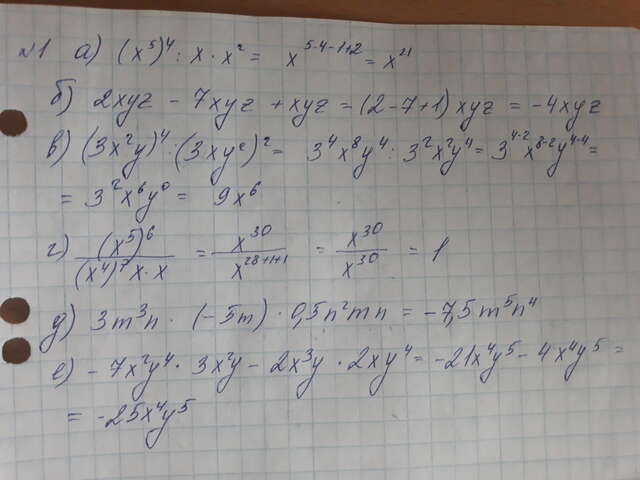 №1 а) (x⁵)⁴ : x · x² = x⁵·⁴⁻¹⁺² = x²¹
б) 2xyz - 7xyz + xyz = (2-7+1)xyz = -4xyz
в) (3x²y)⁴ : (3xy²)² = 3⁴x⁸y⁴ : 3²x²y⁴ = 3⁴⁻²x⁸⁻²y⁴⁻⁴ =
= 3²x⁶y⁰ = 9x⁶
г) (x⁵)⁶ / (x⁴)⁷x·x = x³⁰ / x²⁸⁺¹⁺¹ = x³⁰ / x³⁰ = 1
д) 3m³n · (-5m) · 0,5n²mn = -7,5m⁵n⁴
е) -7x²y⁴ · 3x²y - 2x³y · 2xy⁴ = -21x⁴y⁵ - 4x⁴y⁵ =
= -25x⁴y⁵